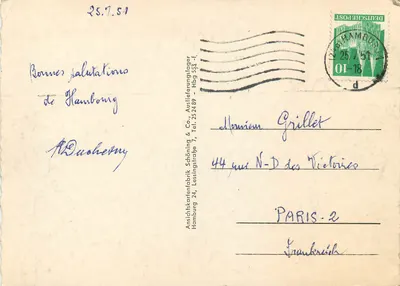 25.7.51
Bonnes salutations
de Hambourg
Ansichtskartenfabrik Schöning & Co., Auslieferungslager
Hamburg 24, Lessingstraße 7, Tel. 25 24 89 - Hbg 553
DEUTSCHE POST
10
HAMBURG
25.7.51-18
d
Monsieur Grillet
44 rue N-D des Victoires
PARIS-2
Frankreich